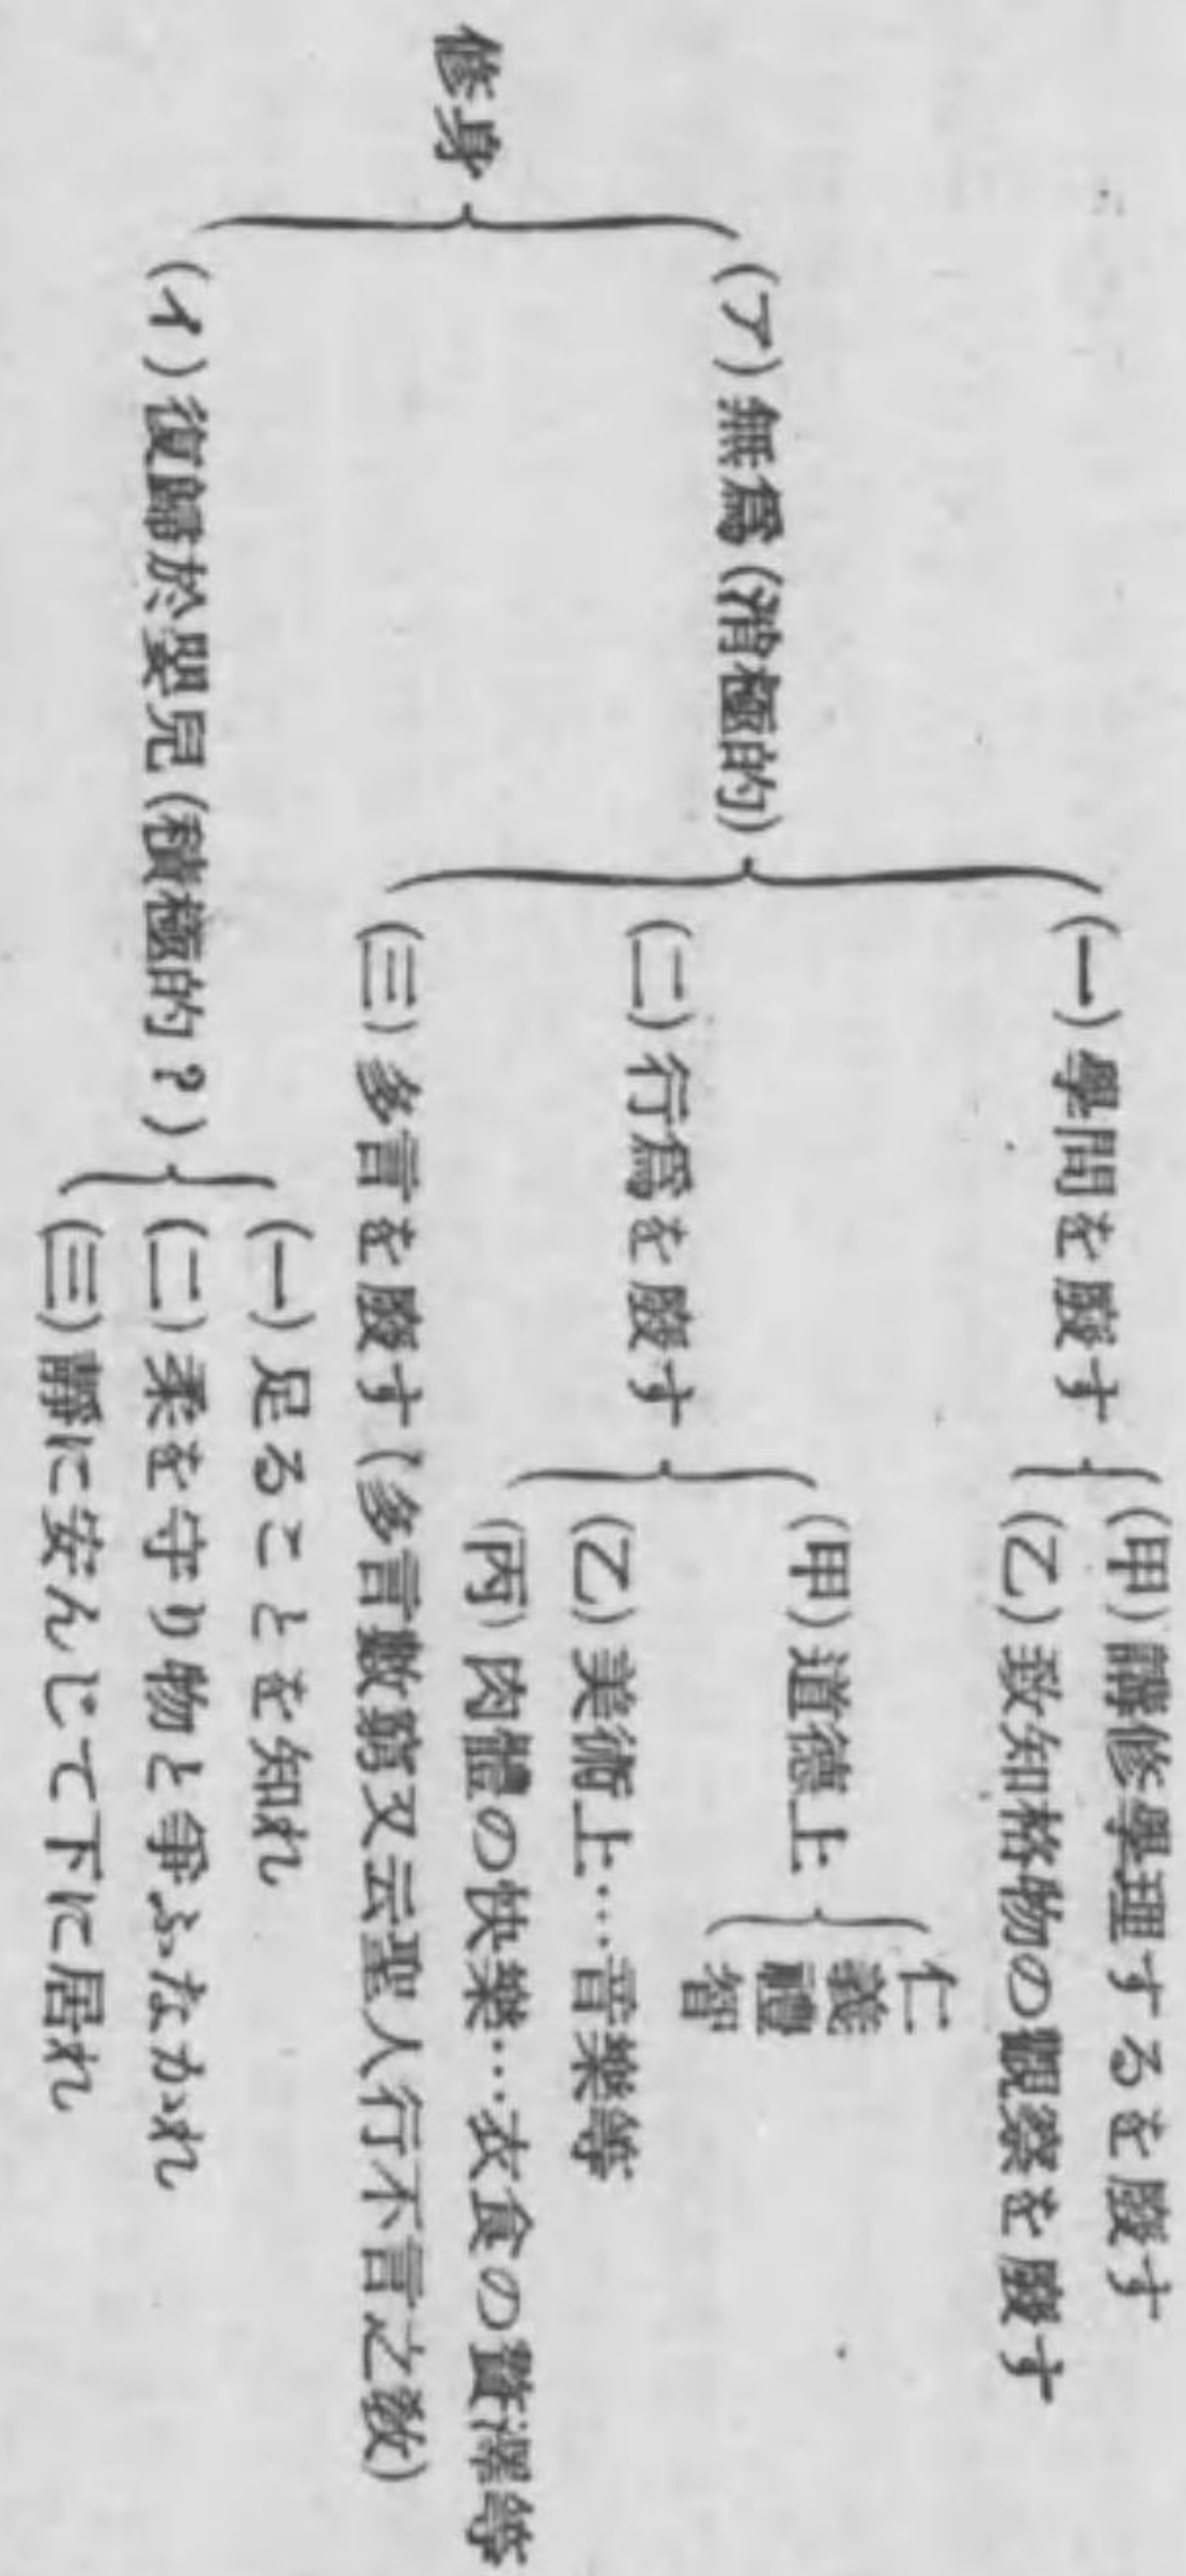 修身
(ア)無爲(消極的)
(一)學問を廢す
(甲)講修學理するを廢す
(乙)致知格物の觀察を廢す
(二)行爲を廢す
(甲)道德上
仁
義
禮
智
(乙)美術上…音樂等
(丙)肉體の快樂…衣食の贅澤等
(三)多言を廢す(多言數窮又云聖人行不言之敎)
(イ)復歸於嬰兒(積極的?)
(一)足ることを知れ
(二)柔を守り物と爭ふなかれ
(三)靜に安んじて下に居れ